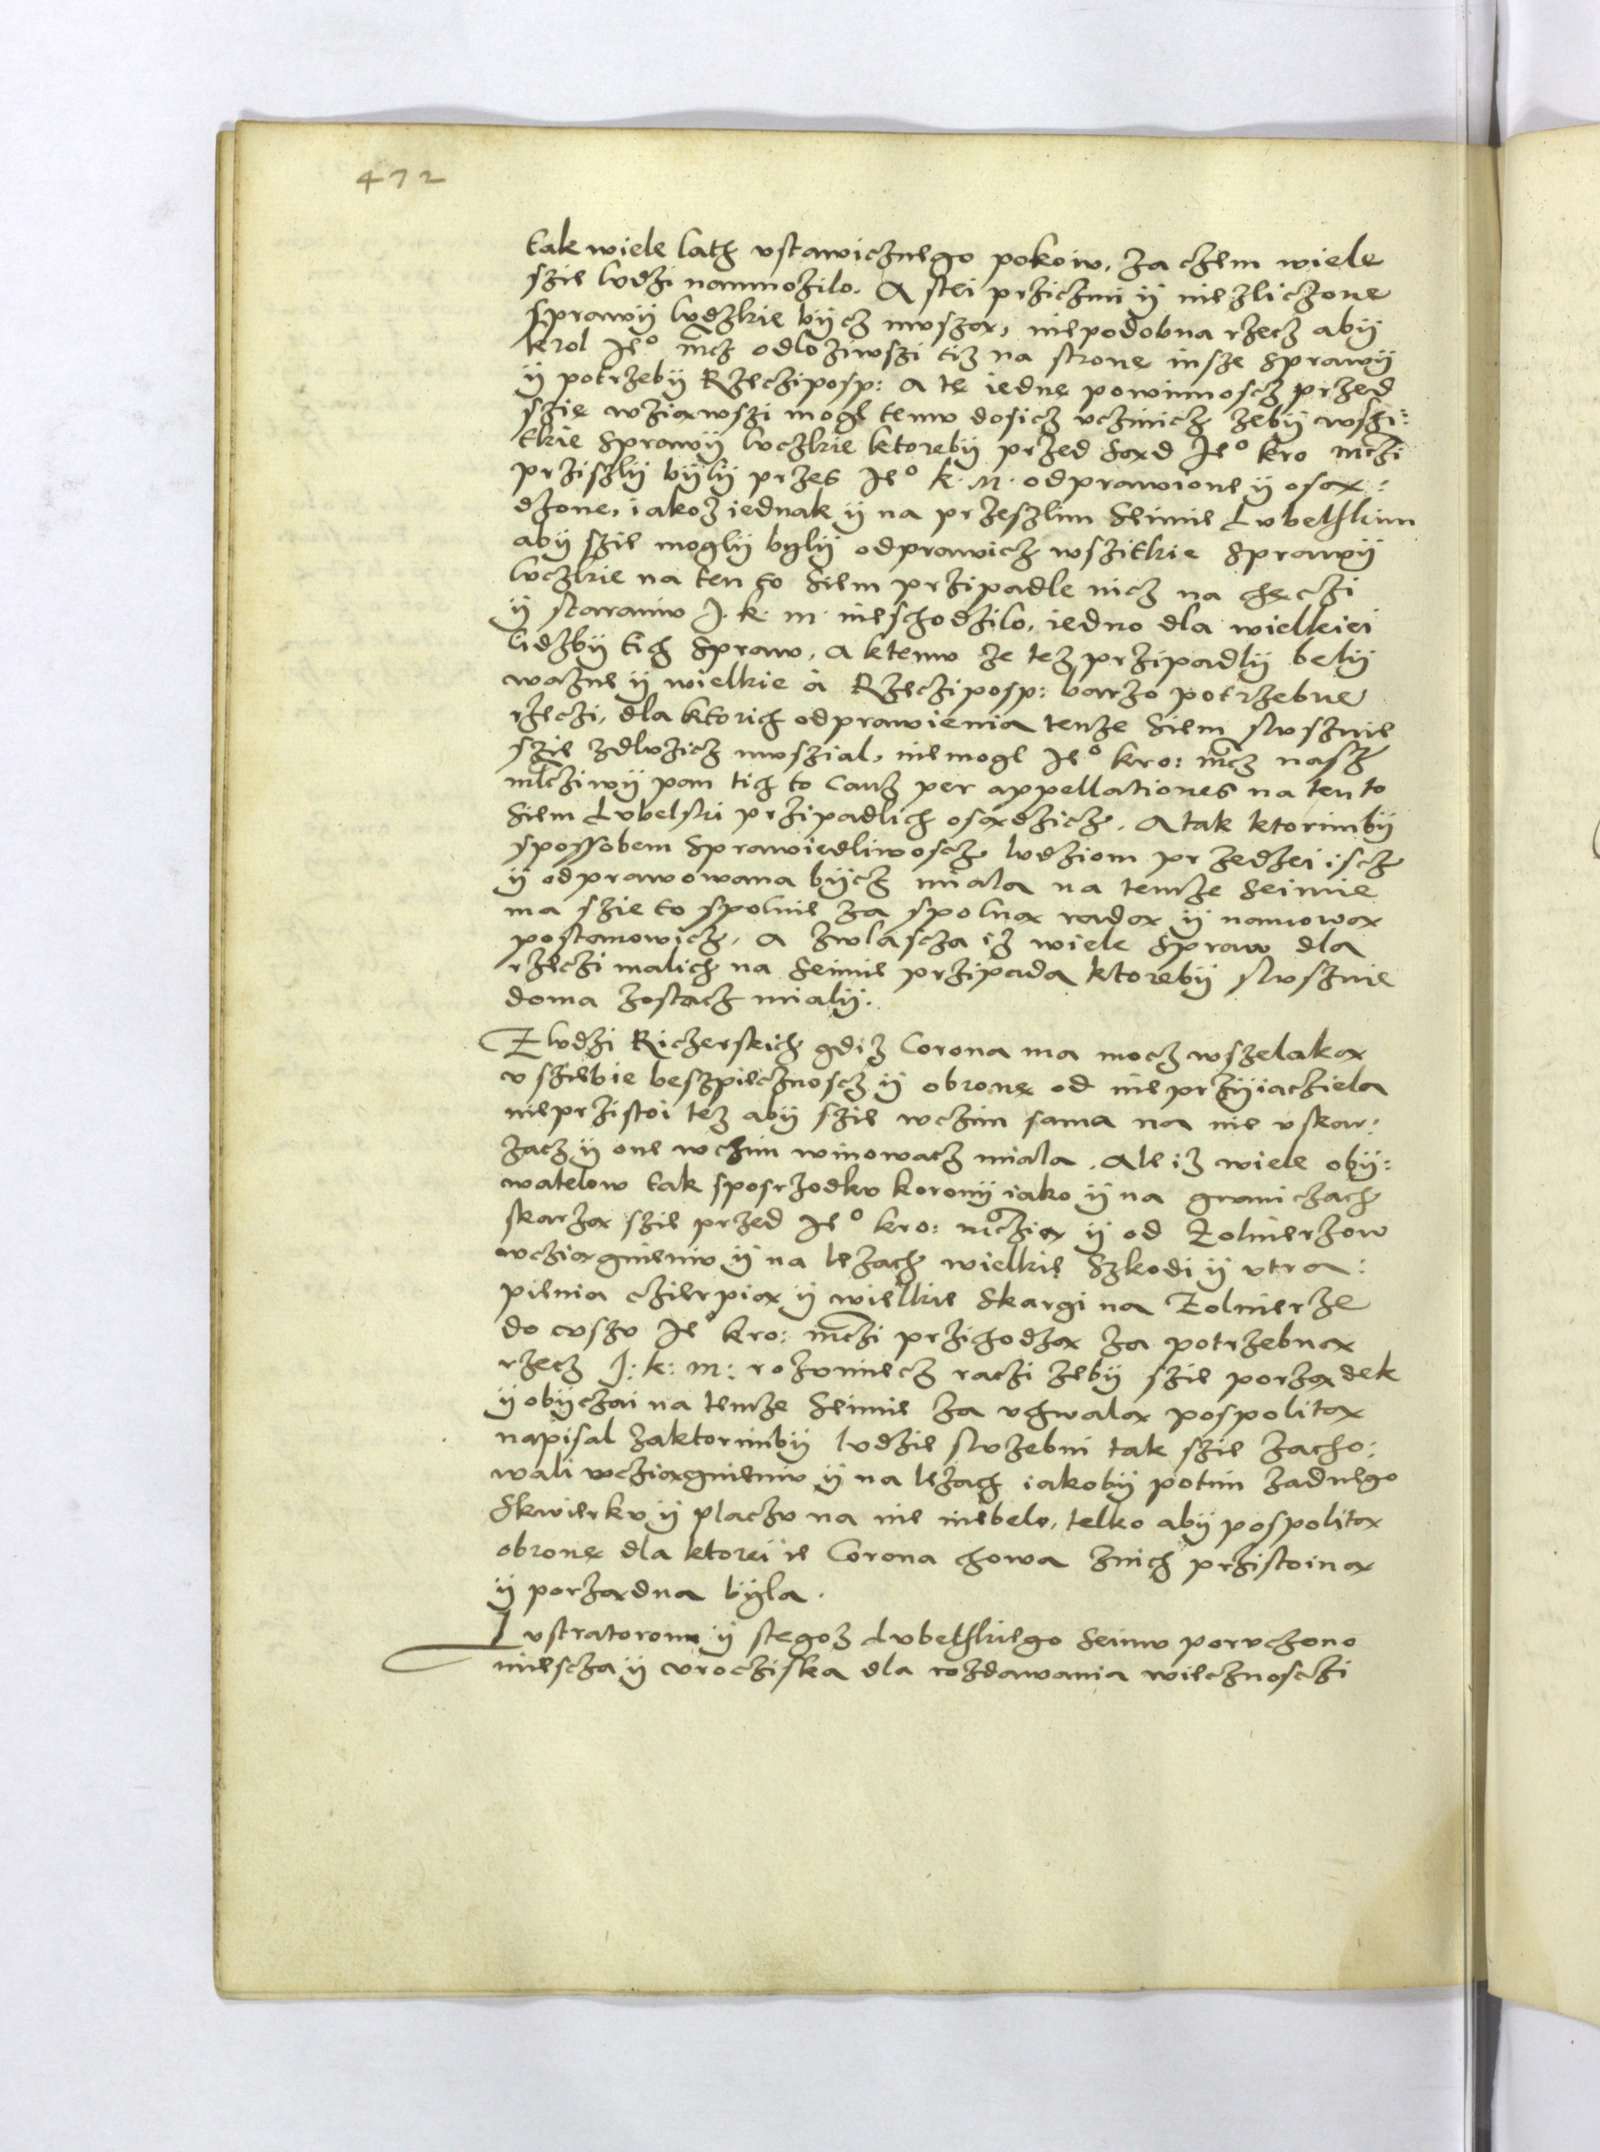 472
tak wiele lath vstawicznego pokoiw, za czem wiele
szie lvdzi namnozilo. A stei przicżini ÿ niezliczone
sprawÿ lvdzkie bÿcz mvszax, niepodobna rzecz abÿ
krol Ieº mcz odloziwszi tiz na stronę insze sprawÿ
ÿ potrzebÿ Rzecziposp: a tę iednę powinnoscz przed
szię wziąwszi mogl temv dosicz vczinicz zebÿ wszi:
tkie sprawÿ lvczkie ktorebÿ przed sąd Ieº kro mczi
prziszlÿ bÿlÿ przes Ieº k. m. odprawione ÿ osą:
dzone, iakoz iednak ÿ na przeszlim seimie Lvbelskim
abÿ szie moglÿ bylÿ odprawicz wszitkie sprawÿ
lvczkie na ten to siem przipadle nicz na chęczi
ÿ staraniv J. k. m. nieschodzilo, iedno dla wielkiei
lidzbÿ tich spraw, a ktemv ze tez przipadlÿ belÿ
wazne ÿ wielkie à Rzecziposp: barzo potrzebne
rzeczi, dla ktorich odprawienia tenze siem slvsznie
szie zdlvzicz mvszial, niemogl Ieº kro: mcz nasz
mlcziwÿ pan tich to cauz per appellationes na ten to
siem Lvbelski przipadlich osądzicz. A tak ktorimbÿ
spossobem sprawiedliwoscz lvdziom przedzei iscz
ÿ odprawowana bÿcz miala na temze seimie
ma szie to spolnie za spolną radą ÿ namową
postanowicz, a zwlascza iz wiele spraw dla
rzeczi malich na seimie przipada ktorebÿ slvsznie
doma zostacz mialÿ.
Z lvdzi Riczerskich gdiz Corona ma mocz wszelaką
v sziebie beszpiecznoscz ÿ obronę od nieprzÿiacziela
nieprzistoi tez abÿ szie wczim sama na nie vskar:
zacz ÿ one wchim winowacz miala. Ale iz wiele obÿ:
watelow tak sposrzodkv koronÿ iako ÿ na graniczach
skarzą szie przed Ieº kro: mcżią ÿ od Zolnierzow
wcziągnieniv ÿ na lezach wielkie szkodi ÿ vtra:
pienia czierpią ÿ wielkie skargi na Zolnierze
do vszv Ieº kro: mczi przichodzą za potrzebną
rzecz J: k: m: rozvmiecz raczi zebÿ szie porządek
ÿ obÿczai na temze seimie za vchwalą pospolitą
napisal zaktorimbÿ lvdzie slvzebni tak szie zacho:
wali wcziągnieniv ÿ na lezach iakobÿ potim zadnego
skwierkv ÿ placzv na nie niebelo, telko abÿ pospolitą
obronę dla ktorei ie Corona chowa znich przistoiną
ÿ porządna bÿla.
Lvstratorom ÿ stegoz Lvbelskiego seimv porvchono
miescza ÿ vrocziska dla rozdawania wiecznosczi